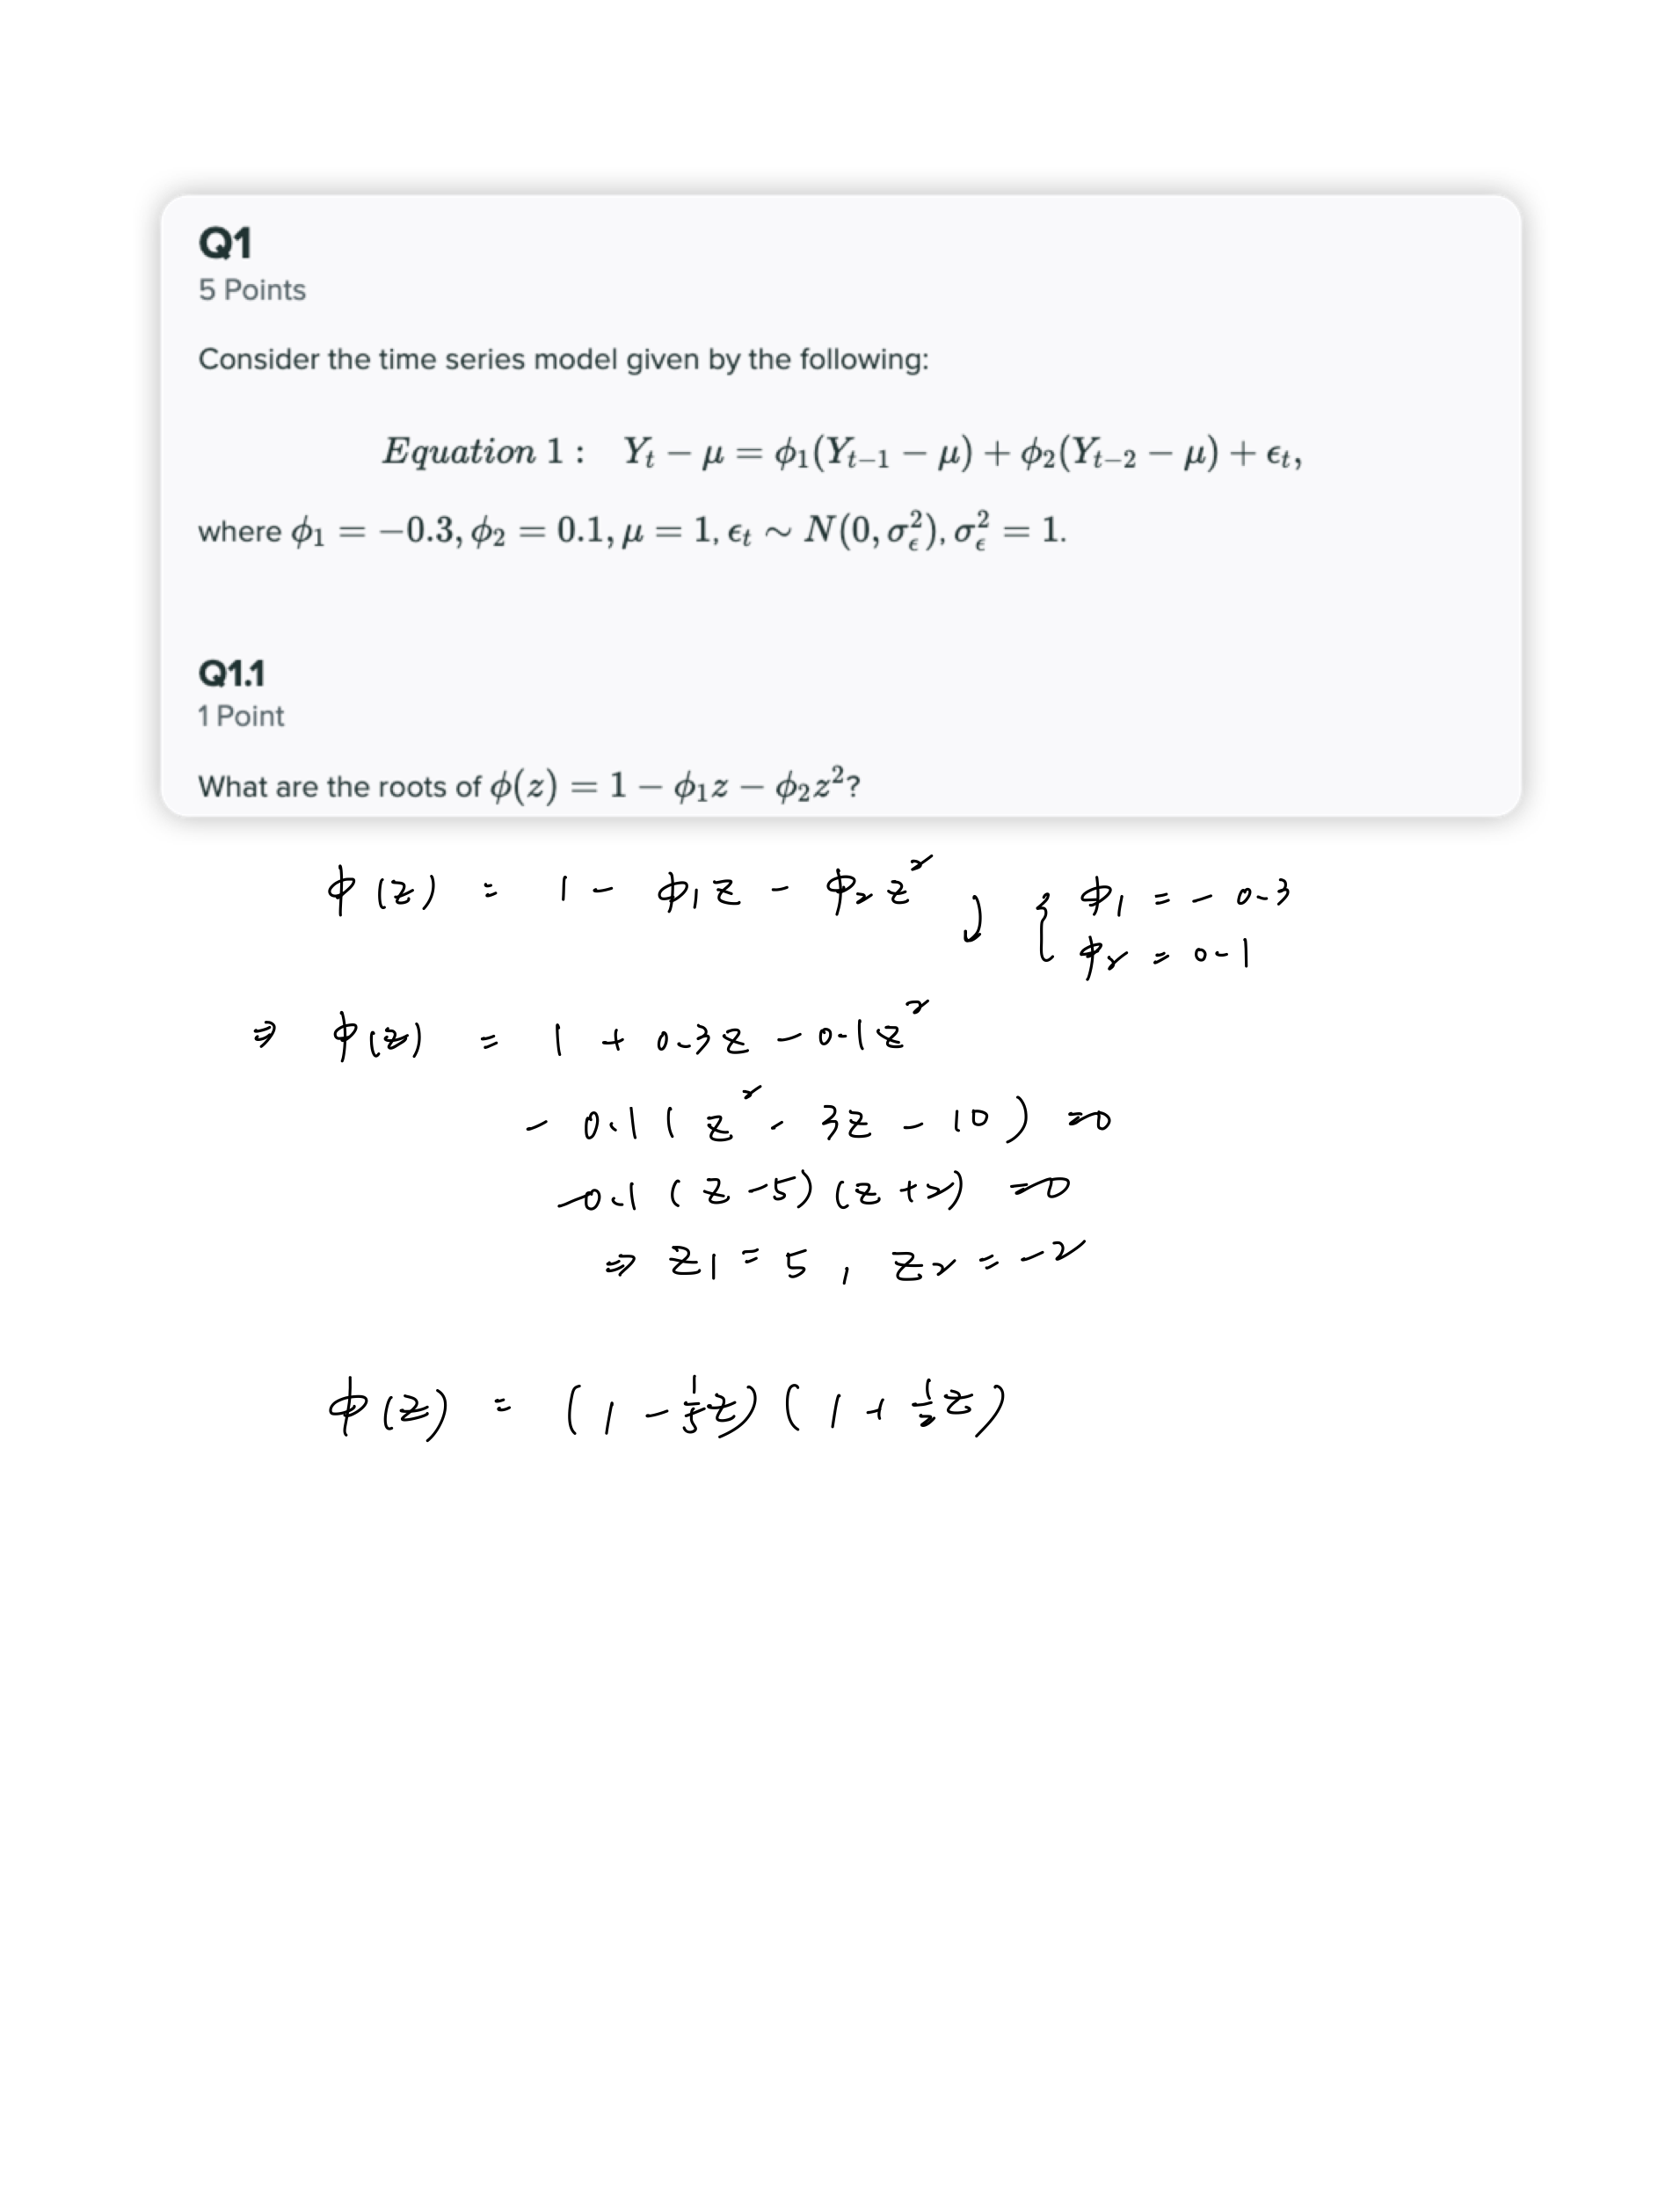 Q1
5 Points
Consider the time series model given by the following:
Equation 1 : Yₜ − μ = ϕ₁(Yₜ₋₁ − μ) + ϕ₂(Yₜ₋₂ − μ) + ϵₜ,
where ϕ₁ = −0.3, ϕ₂ = 0.1, μ = 1, ϵₜ ∼ N(0, σ²_ϵ), σ²_ϵ = 1.
Q1.1
1 Point
What are the roots of ϕ(z) = 1 − ϕ₁z − ϕ₂z²?
ϕ(z) = 1 − ϕ₁z − ϕ₂z² , { ϕ₁ = −0.3
ϕ₂ = 0.1
⇒ ϕ(z) = 1 + 0.3z − 0.1z²
−0.1(z² − 3z − 10) = 0
−0.1(z − 5)(z + 2) = 0
⇒ z₁ = 5, z₂ = −2
ϕ(z) = (1 − 1/5 z)(1 + 1/2 z)